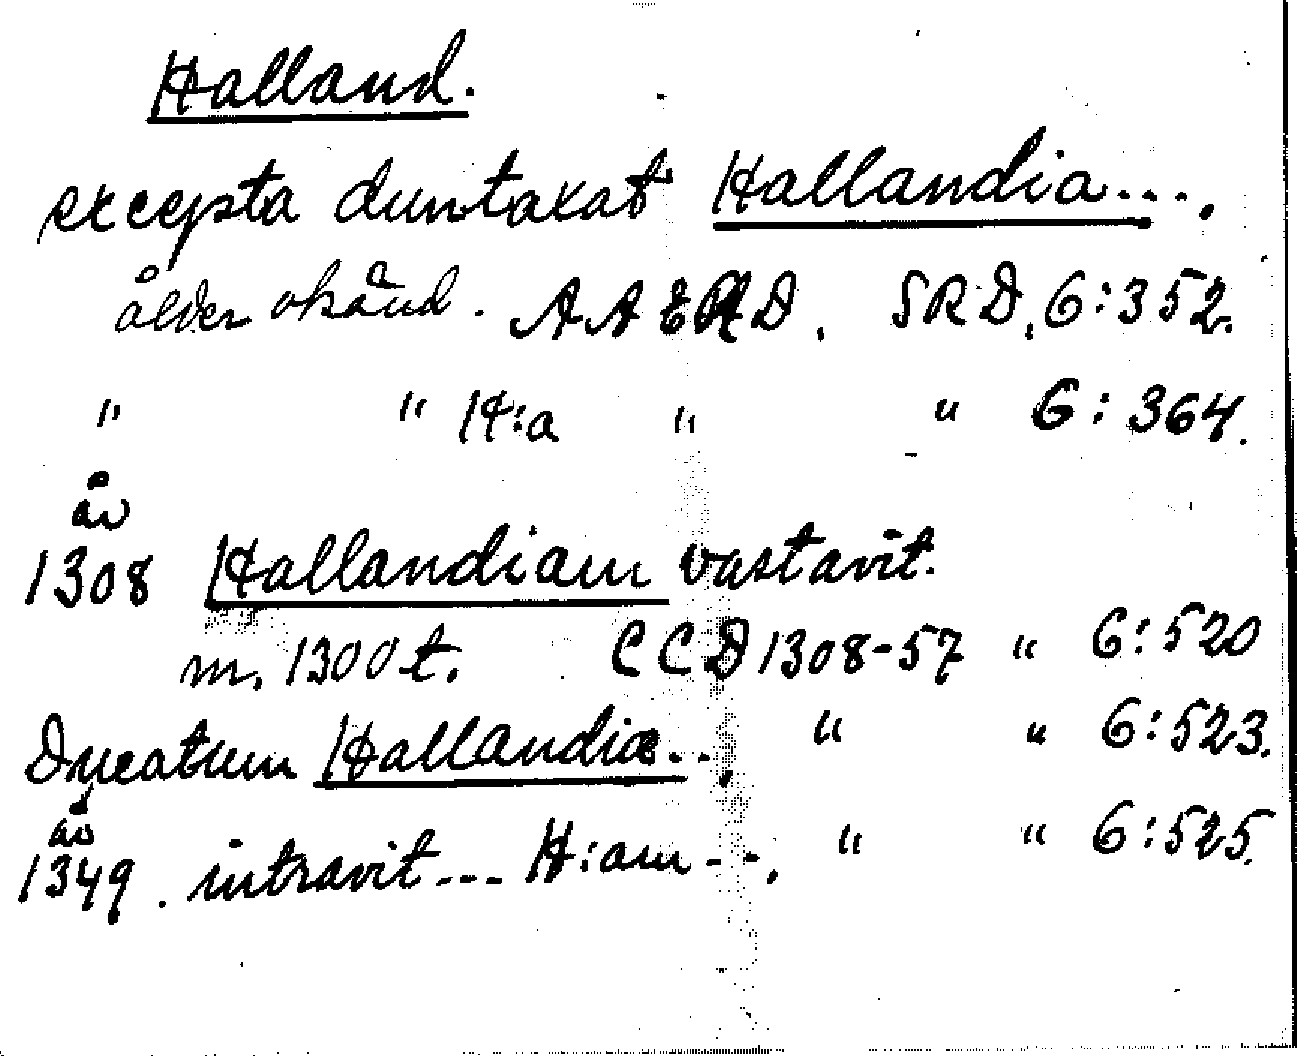 Halland.
excepta duntaxat Hallandia...,
ålder okänd. A A E R D. S R D, 6:352.
" " H:a " " 6:364.
år
1308 Hallandiam vastavit.
m. 1300 t. C C D 1308-57 " 6:520
Ducatum Hallandiæ..., " " 6:523.
år
1349. intravit --- H:am --, " " 6:525.